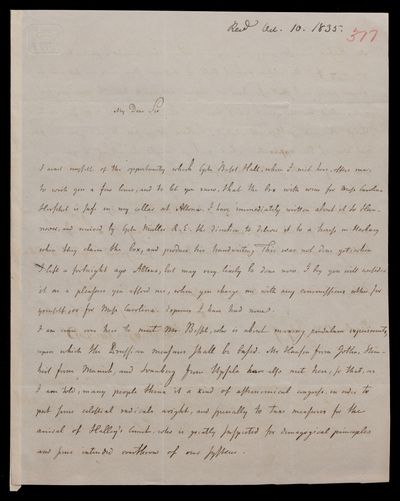 Recd Oct. 10. 1835.
377
My Dear Sir
I avail myself of the opportunity which Capt. Basil Hall, whom I met here, offers me,
to write you a few lines, and to let you know, that the Box with wine for Miss Caroline
Herschel is safe in my cellar at Altona. I have immediately written about it to Han-
nover, and received by Capt. Müller R.E. the direction to deliver it to a house in Harburg
when they claim the box, and produce his handwriting. This was not done yet when
I left a fortnight ago Altona, but may very likely be done now. I beg you will consider
it as a pleasure you afford me, when you charge me with any commissions either for
yourself, or for Miss Carolina. I have
I am come over here to meet Mr. Bessel, who is about making pendulum experiments,
upon which the Prussian measures shall be based. Mr Hansen from Gotha, Stein-
heil from Munich, and Svanberg from Upsala have also met here, so that, as
I am told, many people think it a kind of astronomical congress, in order to
put some celestial radicals aright, and specially to take measures for the
arrival of Halley's Comet, who is greatly suspected for demagogical principles
and some intended overthrow of our system.